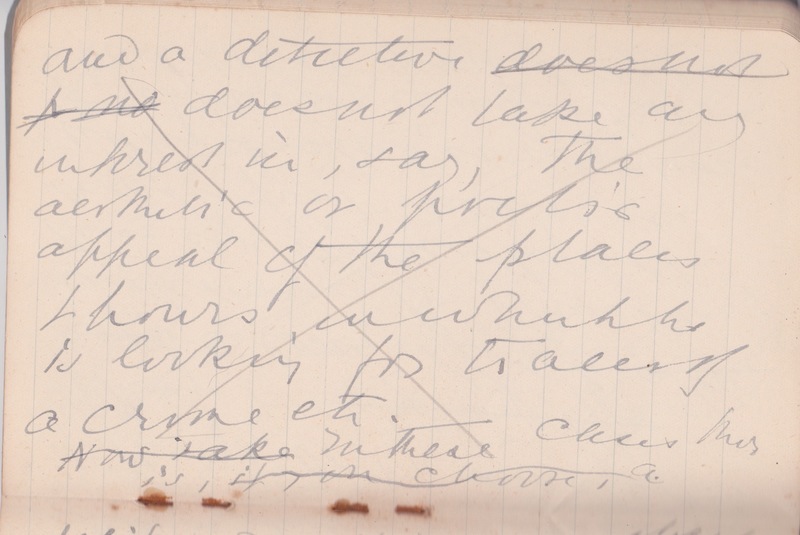 and a detective does not
does not take any
interest in, say, the
aesthetic or poetic
appeal of the places
& hours in which he
is looking for traces of
a crime etc.
Now take In these cases there
is, if you choose, a